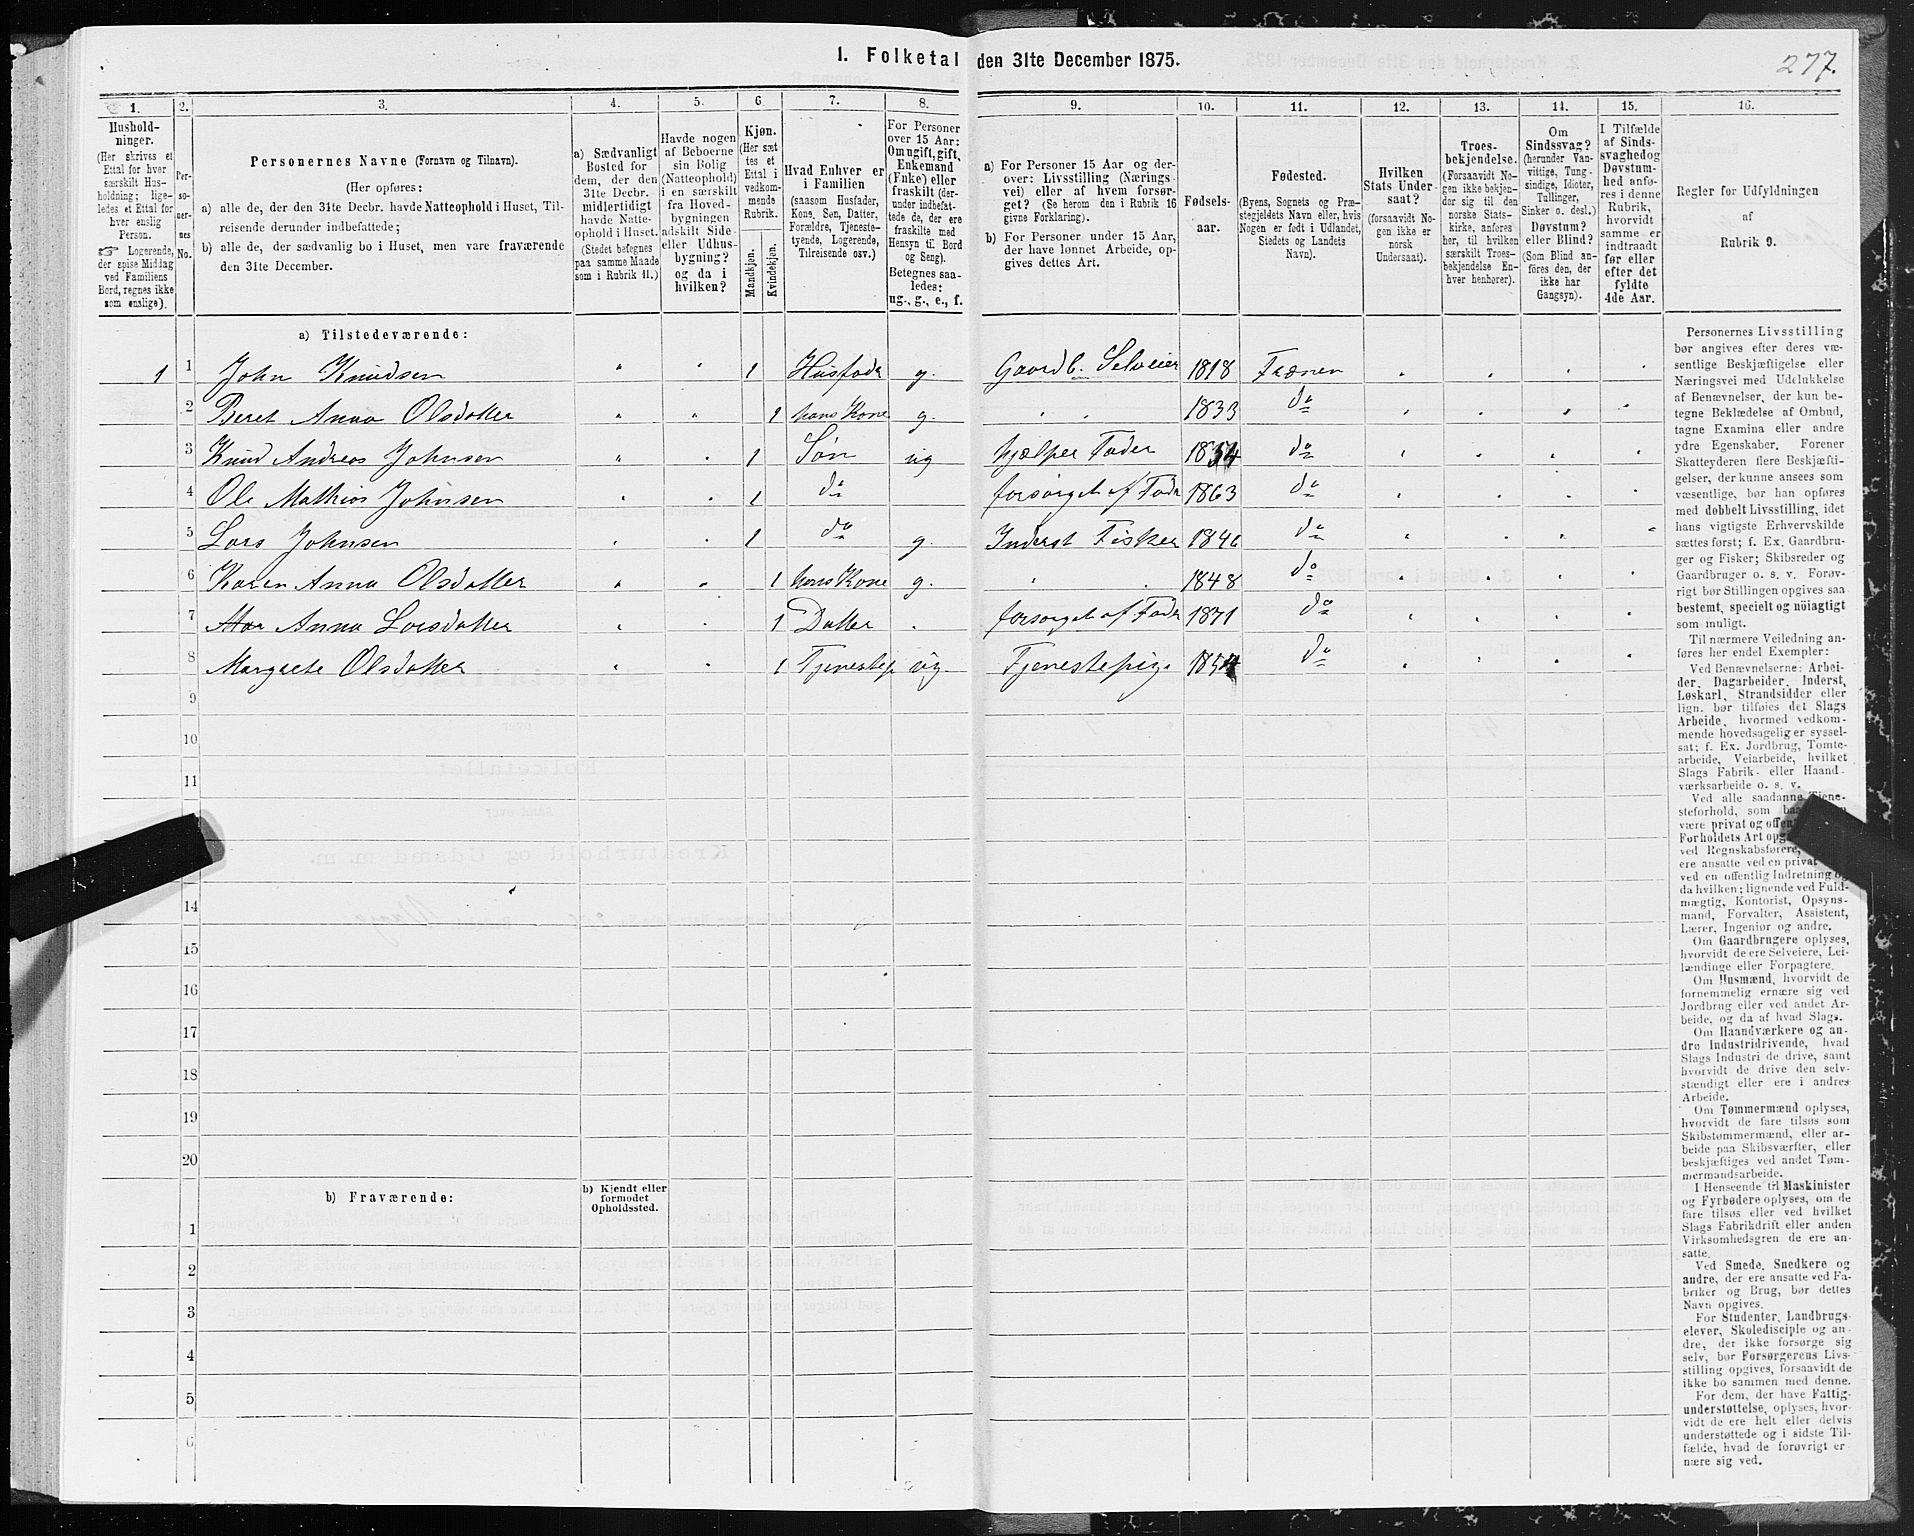 1. Folketal den 31te December 1875.
277.
1.
Hushold-
ninger.
(Her skrives et
Ettal for hver
særskilt Hus-
holdning; lige-
ledes et Ettal for
hver enslig
Person.
☞ Logerende,
der spise Middag
ved Familiens
Bord, regnes ikke
som enslige).
2.
Per-
so-
ner-
nes
No.
3.
Personernes Navne (Fornavn og Tilnavn).
(Her opføres:
a) alle de, der den 31te Decbr. havde Natteophold i Huset, Til-
reisende derunder indbefattede;
b) alle de, der sædvanlig bo i Huset, men vare fraværende
den 31te December.
4.
a) Sædvanligt
Bosted for
dem, der den
31te Decbr.
midlertidigt
havde Natte-
ophold i Huset.
(Stedet betegnes
paa samme Maade
som i Rubrik 11.)
5.
Havde nogen
af Beboerne
sin Bolig
(Natteophold)
i en særskilt
fra Hoved-
bygningen
adskilt Side-
eller Udhus-
bygning?
og da i
hvilken?
6
Kjøn.
(Her sæt
tes et
Ettal i
vedkom-
mende
Rubrik.
Mandkjøn.
Kvindekjøn.
7.
Hvad Enhver er
i Familien
(saasom Husfader,
Kone, Søn, Datter,
Forældre, Tjeneste-
tyende, Logerende,
Tilreisende osv.)
8.
For Personer
over 15 Aar:
Om ugift, gift,
Enkemand
(Enke) eller
fraskilt (der-
under indbefat-
tede de, der ere
fraskilte med
Hensyn til Bord
og Seng).
Betegnes saa-
ledes:
ug., g., e., f.
9.
a) For Personer 15 Aar og der-
over: Livsstilling (Nærings-
vei) eller af hvem forsør-
get? (Se herom den i Rubrik 16
givne Forklaring).
b) For Personer under 15 Aar,
der have lønnet Arbeide, op-
gives dettes Art.
10.
Fødsels-
aar.
11.
Fødested.
(Byens, Sognets og Præ-
stegjeldets Navn eller, hvis
Nogen er født i Udlandet,
Stedets og Landets
Navn).
12.
Hvilken
Stats Under-
saat?
(forsaavidt No-
gen ikke er
norsk
Undersaat).
13.
Troes-
bekjendelse.
(Forsaavidt No-
gen ikke bekjen-
der sig til den
norske Stats-
kirke, anføres
her, til hvilken
særskilt Troes-
bekjendelse En-
hver henhører).
14.
Om
Sindssvag?
(herunder Van-
vittige, Tung-
sindige, Idioter,
Tullinger,
Sinker o. desl.)
Døvstum?
eller Blind?
(Som Blind an-
føres den, der
ikke har
Gangsyn).
15.
I Tilfælde
af Sinds-
svaghed og
Døvstum-
hed anfø-
res i denne
Rubrik,
hvorvidt
samme er
indtraadt
før eller
efter det
fyldte
4de Aar.
16.
Regler for Udfyldningen
af
Rubrik 9.
a) Tilstedeværende:
1 1 John Knudsen " " 1 Husfader g. Gaardb. Selveier 1818 Frænen
2 Beret Anna Olsdatter " " 1 hans Kone g. 1833 do
3 Knud Andreas Johnsen " " 1 Søn ug hjælper Fader 1854 do
4 Ole Mathias Johnsen " " 1 do forsørget af Fader 1863 do
5 Lars Johnsen " " 1 do g. Inderst Fisker 1846 do
6 Karen Anna Olsdatter " " 1 hans Kone g. 1848 do
7 Anna Larsdatter " " 1 Datter forsørget af Fader 1871 do
8 Margrete Olsdatter " " 1 Tjenestep ug Tjenestepige 1854 do
9
10
11
14
15
16
17
18
19
20
b) Fraværende:
b) Kjendt eller
formodet
Opholdssted.
1
2
3
4
5
6
Personernes Livsstilling
bør angives efter deres væ-
sentlige Beskjæftigelse eller
Næringsvei med Udelukkelse
af Benævnelser, der kun be-
tegne Beklædelse af Ombud,
tagne Examina eller andre
ydre Egenskaber. Forener
Skatteyderen flere Beskjæfti-
gelser, der kunne ansees som
væsentlige, bør han opføres
med dobbelt Livsstilling, idet
hans vigtigste Erhvervskilde
sættes først; f. Ex. Gaardbru-
ger og Fisker; Skibsreder og
Gaardbruger o. s. v. Forøv-
rigt bør Stillingen opgives saa
bestemt, specielt og nöiagtigt
som muligt.
Til nærmere Veiledning an-
føres her endel Exempler:
Ved Benævnelserne: Arbei-
der, Dagarbeider, Inderst,
Løskarl, Strandsidder eller
lign. bør tilføies det Slags
Arbeide, hvormed vedkom-
mende hovedsagelig er syssel-
sat; f. Ex. Jordbrug, Tomte-
arbeide, Veiarbeide, hvilket
Slags Fabrik- eller Haand-
værksarbeide o. s. v.
Ved alle saadanne Tjene-
steforhold, som
være privat og
Forholdets Art
ved Regnskabsførere,
ere ansatte ved en privat
ved en offentlig Indretning og
da hvilken; lignende ved Fuld-
mægtig, Kontorist, Opsyns-
mand, Forvalter, Assistent,
Lærer, Ingeniør og andre.
Om Gaardbrugere oplyses,
hvorvidt de ere Selveiere, Lei-
lændinge eller Forpagtere.
Om Husmænd, hvorvidt de
fornemmelig ernære sig ved
Jordbrug eller ved andet Ar-
beide, og da af hvad Slags.
Om Haandværkere og an-
dre Industridrivende, hvad
Slags Industri de drive, samt
hvorvidt de drive den selv-
stændigt eller ere i andres
Arbeide.
Om Tømmermænd oplyses,
hvorvidt de fare tilsøs som
Skibstømmermænd, eller ar-
beide paa Skibsværfter, eller
beskjæftiges ved andet Tøm-
mermandsarbeide.
I Henseende til Maskinister
og Fyrbødere oplyses, om de
fare tilsøs eller ved hvilket
Slags Fabrikdrift eller anden
Virksomhedsgren de ere an-
satte.
Ved Smede, Snedkere og
andre, der ere ansatte ved Fa-
briker og Brug, bør dettes
Navn opgives.
For Studenter, Landbrugs-
elever, Skoledisciple og an-
dre, der ikke forsørge sig
selv, bør Forsørgerens Livs-
stilling opgives, forsaavidt de
ikke bo sammen med denne.
For dem, der have Fattig-
understøttelse, oplyses, hvor-
vidt de ere helt eller delvis
understøttede og i sidste Til-
fælde, hvad de forøvrigt er-
nære sig ved.